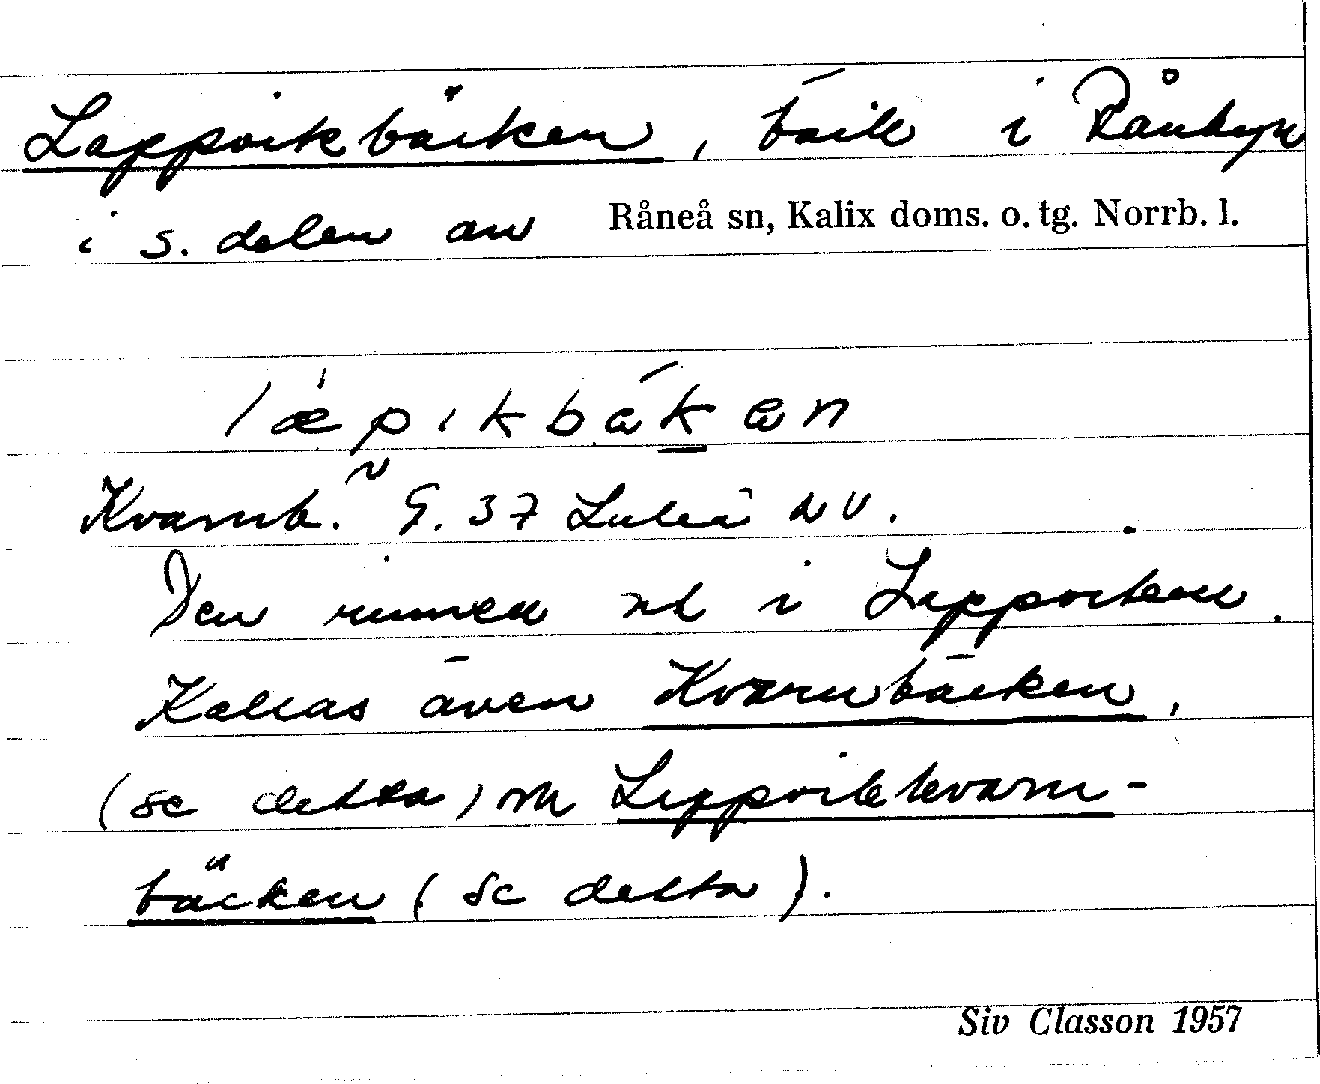 Lappvikbäcken, bäck i Rånbyn
i s. delen av Råneå sn, Kalix doms. o. tg. Norrb. l.
læpikbäkan
Kvarnb. G. 37 Luleå NV.
Den rinner ut i Lappviken.
Kallas även Kvarnbäcken,
(se detta) och Lappvikkvarn-
bäcken (se detta).
Siv Classon 1957